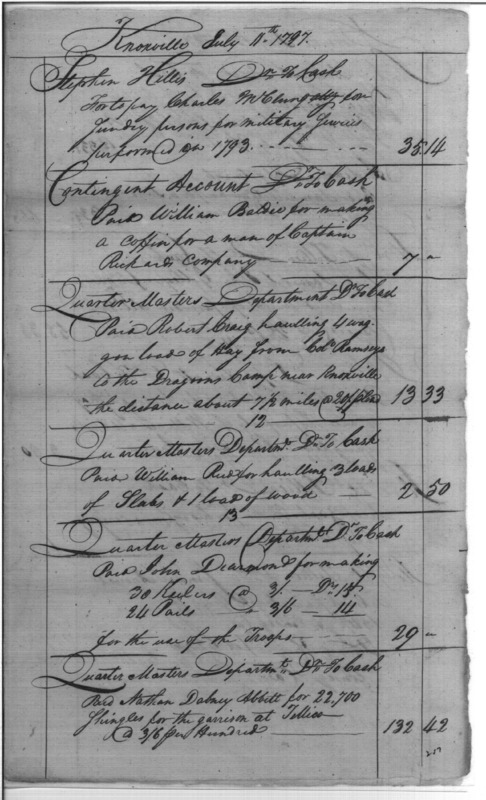 Knoxville July 11th 1797.
Stephen Hillis Dr. To Cash
for pay Charles McClung for
Sundry persons for military Services
perform'd in 1793. 35 14
Contingent Account Dr. To Cash
Paid William Baldie for making
a coffin for a man of Captain
Rickards Company 7 "
Quarter Masters Department Dr. To Cash
Paid Robert Craig haulling 4 wag-
gon load of Hay from Colo. Ramseys
to the Dragoons Camp near Knoxville
the distance about 7 1/2 miles @ 20/ 13 33
12
Quarter Masters Departmt. Dr. To Cash
Paid William Reed for haulling 3 loads
of Slabs & 1 load of wood 2 50
13
Quarter Masters Departmt. Dr. To Cash
Paid John Dearmond for making
30 Keelers @ 3/. Drs. 15
24 Pails @ 3/6 14
for the use of the Troops 29 "
Quarter Masters Departmt. Dr. To Cash
Paid Nathan Dabney Abbitt for 22,700
Shingles for the garrison at Tellico
@ 3/6 per Hundred 132 42